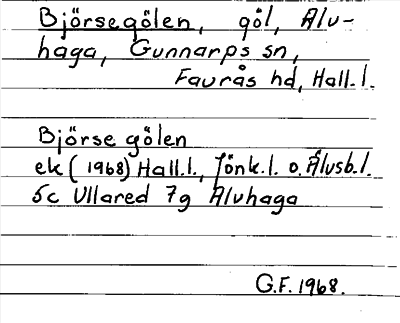 Björsegölen, göl, Älv-
haga, Gunnarps sn,
Faurås hd, Hall. l.
Björse gölen
ek (1968) Hall.l., Jönk.l. o. Älvsb.l.
5c Ullared 7g Älvhaga
G.F. 1968.